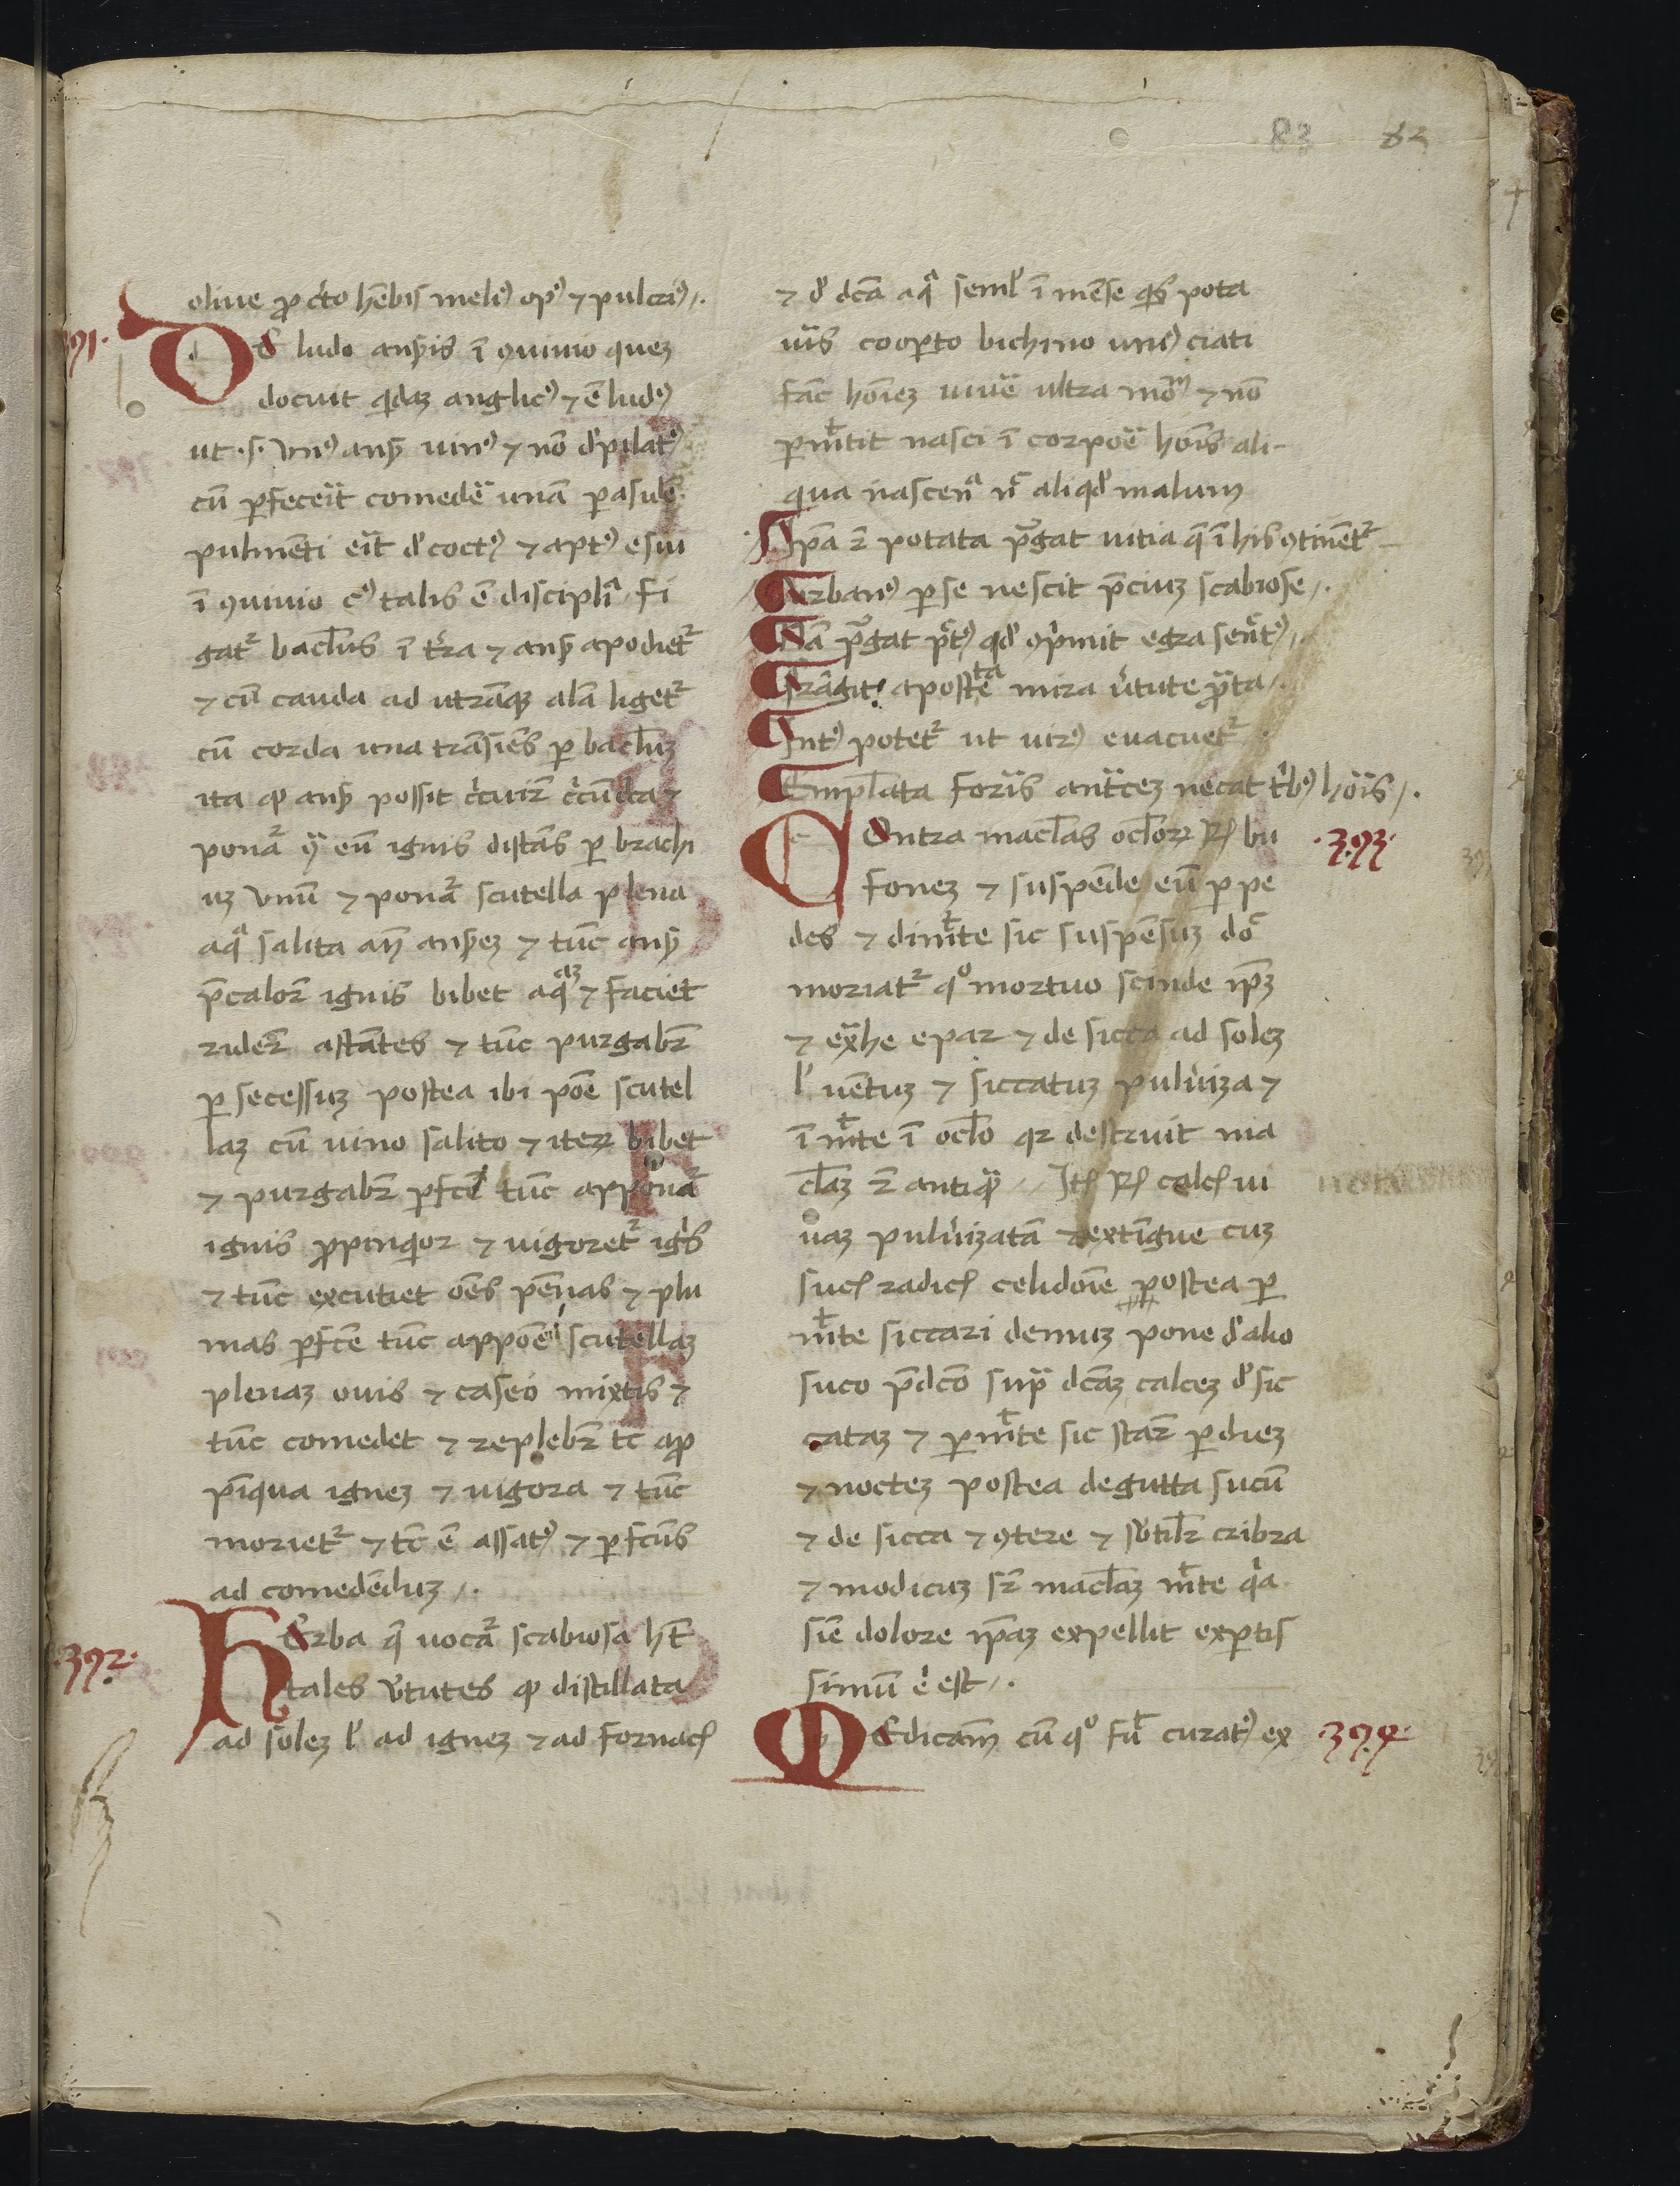 83 82
olive p̱ cͥto hēbis meliꝰ opꝰ ⁊ pulcriꝰ
391.
DE ludo anſ̉is ī ꝯuiuio quez
docuit qͥdaz anglicꝰ ⁊ ē ludꝰ
ut .s. vnꝰ anſ̉ uiuꝰ ⁊ nō dͤpilatꝰ
cū ꝑfeceīt comedē unā ꝑasidē
pulmēti eīt dͤcoctꝰ ⁊ aptꝰ esui
ī ꝯuiuio cꝰ talis ē disciplīa fi
gatᷣ baclus ī tr̄a ⁊ anſ̉ apodietᷣ
⁊ cū cauda ad utrāqꝫ alā ligetᷣ
cū corda una trāsiēs ꝑ baclum
ita ꝙ anſ̉ possit cͥcuire cͥcūcta ⁊
ponātᷣ
eū ignis distās ꝑ brachi
uz vnū ⁊ ponatᷣ scutella plena
aqͣ salita an̄ anſ̉ez ⁊ tūc anſ̉
p̄calorē ignis bibet aqͣaz ⁊ faciet
ridere astātes ⁊ tūc purgabᷣ
ꝑ secessuz postea ibi pōe scutel
laz cū uino salito ⁊ iterz bibet
⁊ purgabᷣ ꝑfcē tūc apponatᷣ
ignis ꝓpinqͥor ⁊ uigoretᷣ igͥs
⁊ tūc excutiet oēs pēnas ⁊ plu
mas ꝑfcē tūc appōe scutellaz
plenaz ouis ⁊ caseo mixtis ⁊
tūc comedet ⁊ replebᷣ tc̄ aꝓ
pīqua ignez ⁊ uigora ⁊ tūc
morietᷣ ⁊ tc̄ ē assatꝰ ⁊ ꝑfcūs
ad comedēduz
392.
HErba q̄ uocatᷣ scabiosa hꝫ
tales v̉tutes ꝙ distillata
ad solez lͥ ad ignez ⁊ ad fornacꝭ
⁊ dͤ dcā aqͣ semͥl ī mēse qͥs pota
uīs cooꝑto bichino unꝰ ciati
fac̄ hōiez uiuē ultra mōꝫ ⁊ nō
ꝑmͥtit nasci ī corpoē hōis ali-
qua nascēnͣ nͨ aliqd̄ malum
Ipā ē potata pͥgat uitia q̄ ī his ꝯtinetᷣ
Urbanꝰ ꝑse nescit p̄ciuz scabiose
Nā pͥgat pͨtꝰ qd̄ opͥmit egra senͨtꝰ
Frāgit apostēta mira v̉tute ꝓ̄ta
Intꝰ potetᷣ ut uirꝰ euacuetᷣ
Emplata foris antͨcez necat tͥbꝰ horis
393.
COntra maclas oclorz Rꝭ bu
fonez ⁊ suspēde eū ꝑ pe
des ⁊ dimͥte sic suspēsuz dōͨ
moriatᷣ qͦ mortuo scinde ip̄z
⁊ ex̄he epar ⁊ de sicca ad solez
lͥ uētuz ⁊ siccatuz puluiza ⁊
ī mͥte ī oclo qr destruit ma
claz ē antiqͣ Itꝭ Rꝭ calcꝭ ui
uaz puluizatā ⁊ extīgue cuz
sucꝭ radicꝭ celidoīe postea ꝑ
mͥte siccari demuz pone dͤ alio
suco p̄dco suꝑ dcāz calcez dͤsic
cataz ⁊ ꝑmͥte sic stare ꝑ diez
⁊ noctez postea degutta sucū
⁊ de sicca ⁊ ꝯtere ⁊ sᵬtilr cribra
⁊ modicuz sᷣ maclaz mͥte qͥa
siē dolore ip̄az expellit exꝑtis
simū ē est
394.
MEdicam̄ cū qͦ fuͥt curatꝰ ex